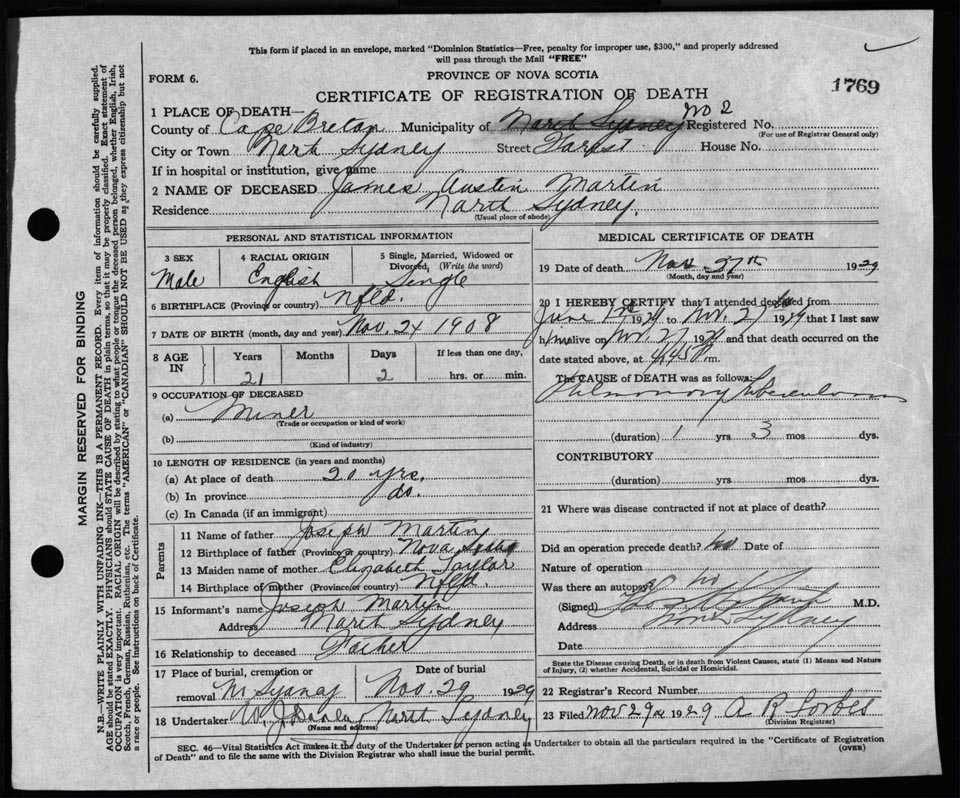 This form if placed in an envelope, marked "Dominion Statistics—Free, penalty for improper use, $300," and properly addressed
will pass through the Mail "FREE"
FORM 6.
PROVINCE OF NOVA SCOTIA
1769
CERTIFICATE OF REGISTRATION OF DEATH
1 PLACE OF DEATH—
County of Cape Breton Municipality of North Sydney No 2 Registered No.
(For use of Registrar General only)
City or Town North Sydney Street House No.
If in hospital or institution, give name
2 NAME OF DECEASED James Austin Martin
Residence North Sydney.
(Usual place of abode)
PERSONAL AND STATISTICAL INFORMATION
3 SEX 4 RACIAL ORIGIN 5 Single, Married, Widowed or
Divorced, (Write the word)
Male English Single
6 BIRTHPLACE (Province or country) Nfld.
7 DATE OF BIRTH (month, day and year) Nov. 24 1908
8 AGE IN Years Months Days If less than one day,
21 2 hrs. or min.
9 OCCUPATION OF DECEASED
(a) Miner
(Trade or occupation or kind of work)
(b)
(Kind of industry)
10 LENGTH OF RESIDENCE (in years and months)
(a) At place of death 20 yrs.
(b) In province do.
(c) In Canada (if an immigrant)
Parents
11 Name of father Joseph Martin
12 Birthplace of father (Province or country) Nova Scotia
13 Maiden name of mother Elizabeth Taylor
14 Birthplace of mother (Province or country) Nfld.
15 Informant's name Joseph Martin
Address North Sydney
16 Relationship to deceased Father
17 Place of burial, cremation or Date of burial
removal N Sydney Nov. 29 1929
18 Undertaker North Sydney
(Name and address)
MEDICAL CERTIFICATE OF DEATH
19 Date of death Nov. 27th 1929
(Month, day and year)
20 I HEREBY CERTIFY that I attended deceased from
June 1929 to Nov. 27 1929 that I last saw
him alive on Nov. 27 1929 and that death occurred on the
date stated above, at 4,45 P m.
The CAUSE of DEATH was as follows:
Pulmonary Tuberculosis
(duration) 1 yrs 3 mos dys.
CONTRIBUTORY
(duration) yrs. mos. dys.
21 Where was disease contracted if not at place of death?
Did an operation precede death? No Date of
Nature of operation
Was there an autopsy? No
(Signed) M.D.
Address North Sydney
Date
State the Disease causing Death, or in death from Violent Causes, state (1) Means and Nature
of Injury, (2) whether Accidental, Suicidal or Homicidal.
22 Registrar's Record Number
23 Filed Nov 29 1929 A R Forbes
(Division Registrar)
SEC. 46—Vital Statistics Act makes it the duty of the Undertaker or person acting as Undertaker to obtain all the particulars required in the "Certificate of Registration
of Death" and to file the same with the Division Registrar who shall issue the burial permit. (OVER)
MARGIN RESERVED FOR BINDING
N.B.—WRITE PLAINLY WITH UNFADING INK—THIS IS A PERMANENT RECORD. Every item of information should be carefully supplied.
AGE should be stated EXACTLY. PHYSICIANS should STATE CAUSE OF DEATH in plain terms, so that it may be properly classified. Exact statement of
OCCUPATION is very important. RACIAL ORIGIN will be described by stating to what people or tongue the deceased person belonged, whether English, Irish,
Scotch, French, German, Russian, Ruthenian, etc. The terms "AMERICAN" or "CANADIAN" SHOULD NOT BE USED as they express citizenship but not
a race or people. See instructions on back of Certificate.